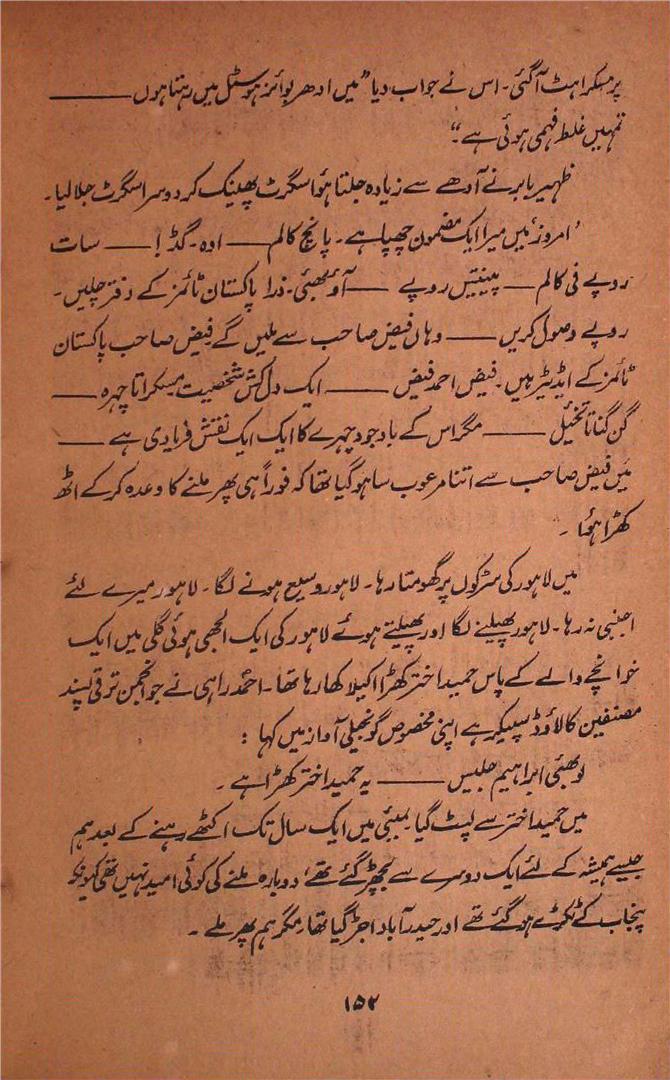 پر مسکراہٹ آ گئی۔ اس نے جواب دیا ”میں ادھر بوائز ہوسٹل میں رہتا ہوں ——
تمہیں غلط فہمی ہوئی ہے“
ظہیر بابر نے آدھے سے زیادہ جلتا ہوا سگرٹ پھینک کر دوسرا سگرٹ جلا لیا۔
’امروز‘ میں میرا ایک مضمون چھپا ہے۔ پانچ کالم —— اوہ۔ گڈ! —— سات
روپے فی کالم — پینتیس روپے —— آؤ بھئی۔ ذرا پاکستان ٹائمز کے دفتر چلیں۔
روپے وصول کریں —— وہاں فیض صاحب سے ملیں گے فیض صاحب پاکستان
ٹائمز کے ایڈیٹر ہیں۔ فیض احمد فیض —— ایک دل کش شخصیت مسکراتا چہرہ ——
گن گناتا تخیّل —— مگر اس کے باوجود چہرے کا ایک ایک نقش فریادی ہے ——
میں فیض صاحب سے اتنا مرعوب سا ہو گیا تھا کہ فوراً ہی پھر ملنے کا وعدہ کر کے اٹھ
کھڑا ہوا۔
میں لاہور کی سڑکوں پر گھومتا رہا۔ لاہور وسیع ہونے لگا۔ لاہور میرے لئے
اجنبی نہ رہا۔ لاہور پھیلنے لگا اور پھیلتے ہوئے لاہور کی ایک الجھی ہوئی گلی میں ایک
خوانچے والے کے پاس حمید اختر کھڑا اکیلا کھا رہا تھا۔ احمد راہی نے جو انجمن ترقی پسند
مصنفین کا لاؤڈ سپیکر ہے اپنی مخصوص گونجیلی آواز میں کہا :
لو بھئی ابراہیم جلیس —— یہ حمید اختر کھڑا ہے۔
میں حمید اختر سے لپٹ گیا بمبئی میں ایک سال تک اکٹھے رہنے کے بعد ہم
جیسے ہمیشہ کے لئے ایک دوسرے سے بچھڑ گئے تھے، دوبارہ ملنے کی کوئی امید نہیں تھی کیونکہ
پنجاب کے ٹکڑے ہو گئے تھے اور حیدرآباد اجڑ گیا تھا، مگر ہم پھر ملے۔
۱۵۲